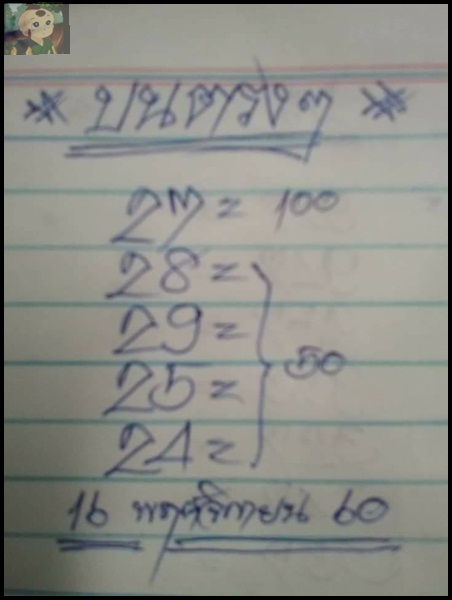 * บนตรงๆ *
27 = 100
28 =
29 =
25 = 50
24 =
16 พฤศจิกายน 60